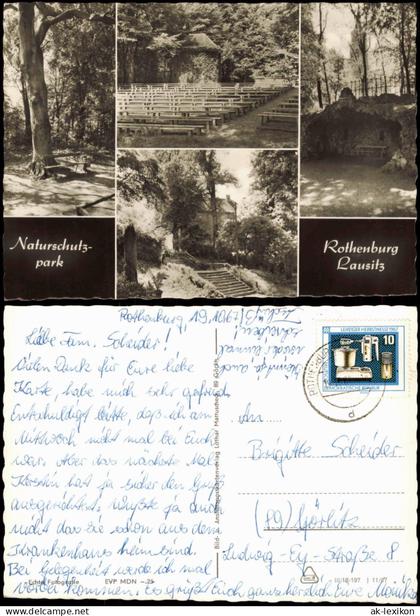 Naturschutz-
park
Rothenburg
Lausitz
Rothenburg, 19.10.67
Liebe Fam. Scheider!
Vielen Dank für Eure liebe
Karte, habe mich sehr gefreut
Entschuldigt bitte, daß ich am
Mittwoch nicht mal bei Euch
war. Aber das nächste Mal.
hat ja sicher den Gruß
ausgerichtet. Wußte ja auch
nicht das Sie schon aus dem
Krankenhaus heim sind.
Bei Gelegenheit werde ich mal
vorbei kommen. es grüßt Euch ganz herzlich Eure
LEIPZIGER HERBSTMESSE 1967
10
DEUTSCHE DEMOKRATISCHE REPUBLIK
ROTHENBURG
d
An
Brigitte Scheider
(89) Görlitz
Ludwig-Ey-Straße 8
Bild- und Ansichtskartenverlag Lothar Mattuschek, 89 Görlitz
Echte Fotografie EVP MDN -,25
III/18/197 J 11/67
© www.ak-lexikon.de
ak-lexikon